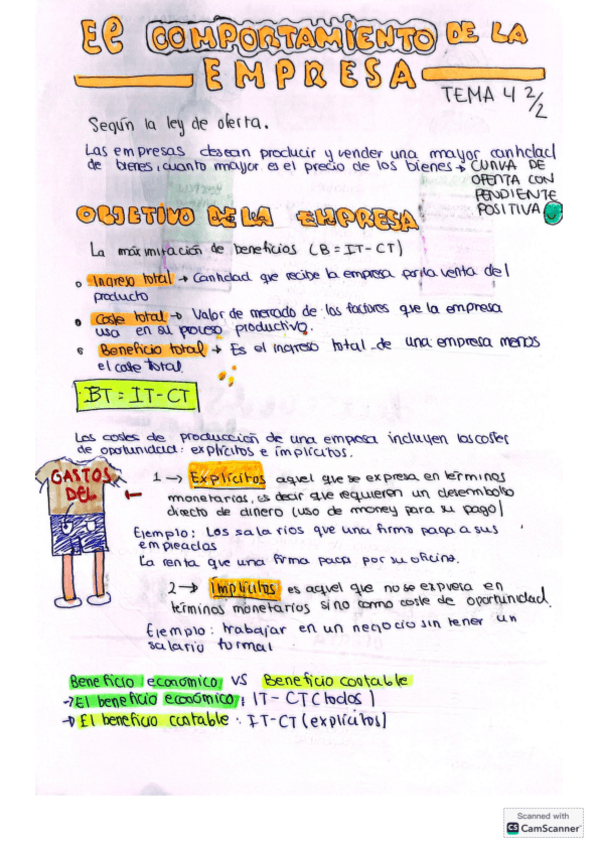 El COMPORTAMIENTO DE LA
EMPRESA
TEMA 4 2/2
Según la ley de oferta.
Las empresas desean producir y vender una mayor cantidad
de bienes, cuanto mayor es el precio de los bienes → CURVA DE
OFERTA CON
PENDIENTE
POSITIVA
OBJETIVO DE LA EMPRESA
La maximización de beneficios (B = IT-CT)
Ingreso total → Cantidad que recibe la empresa por la venta del
producto
Coste total → Valor de mercado de los factores que la empresa
usa en su proceso productivo.
Beneficio total → Es el ingreso total de una empresa menos
el coste total.
BT = IT-CT
Los costes de producción de una empresa incluyen los costes
de oportunidad: explícitos e implícitos.
GASTOS
DEL
1 → Explícitos aquel que se expresa en términos
monetarios, es decir que requieren un desembolso
directo de dinero (uso de money para su pago)
Ejemplo: Los salarios que una firma paga a sus
empleados
La renta que una firma paga por su oficina.
2 → Implícitos es aquel que no se expresa en
términos monetarios sino como coste de oportunidad.
Ejemplo: trabajar en un negocio sin tener un
salario formal
Beneficio económico VS Beneficio contable
→ El beneficio económico: IT - CT (todos)
→ El beneficio contable: IT-CT (explícitos)
Scanned with
CS CamScanner